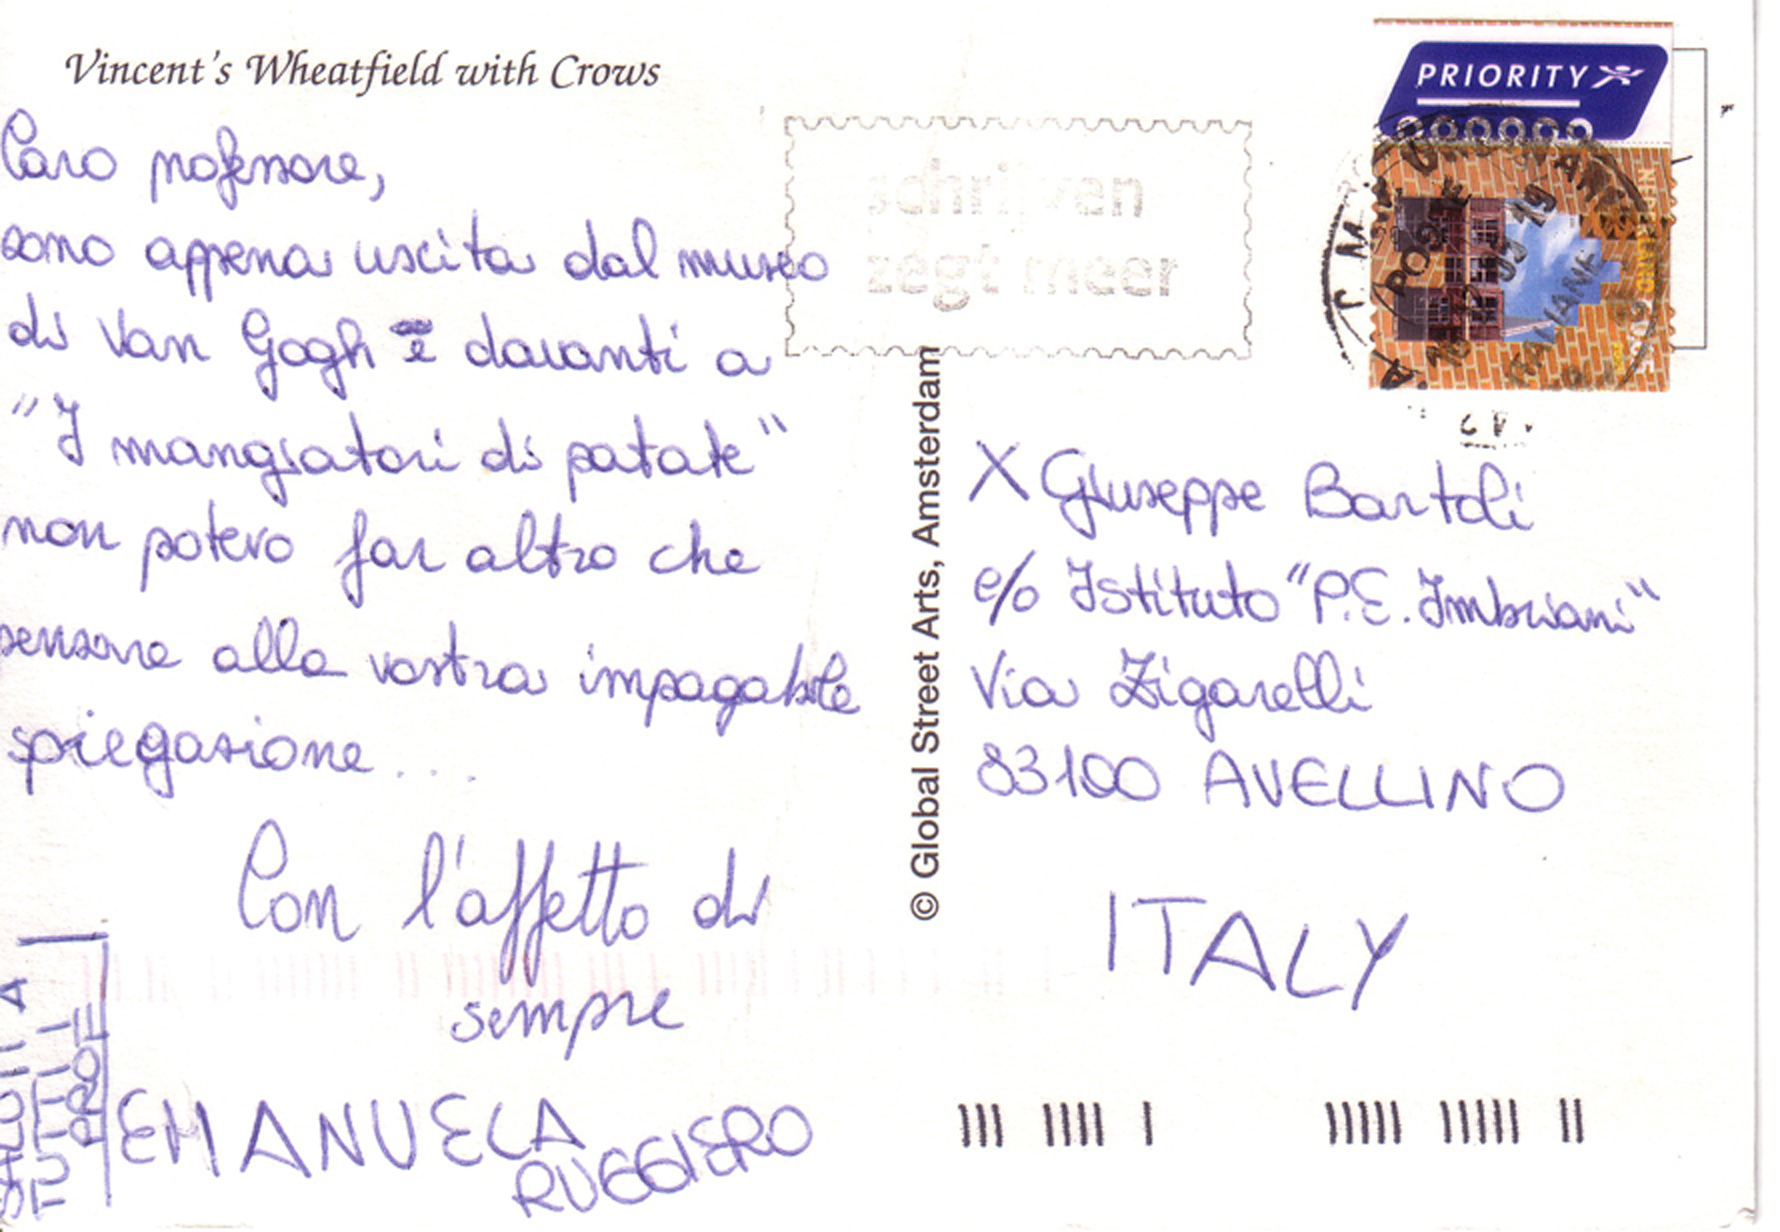 Vincent's Wheatfield with Crows
Caro professore,
sono appena uscita dal museo
di Van Gogh e davanti a
"I mangiatori di patate"
non potevo far altro che
pensare alla vostra impagabile
spiegazione....
Con l'affetto di
sempre
EMANUELA
RUGGIERO
SALUTI A
TUTTI I
PROF
© Global Street Arts, Amsterdam
schrijven
zegt meer
PRIORITY
NEDERLAND
POSTE
ITALIANE
X Giuseppe Bartoli
c/o Istituto "P.E. Imbriani"
Via Zigarelli
83100 AVELLINO
ITALY